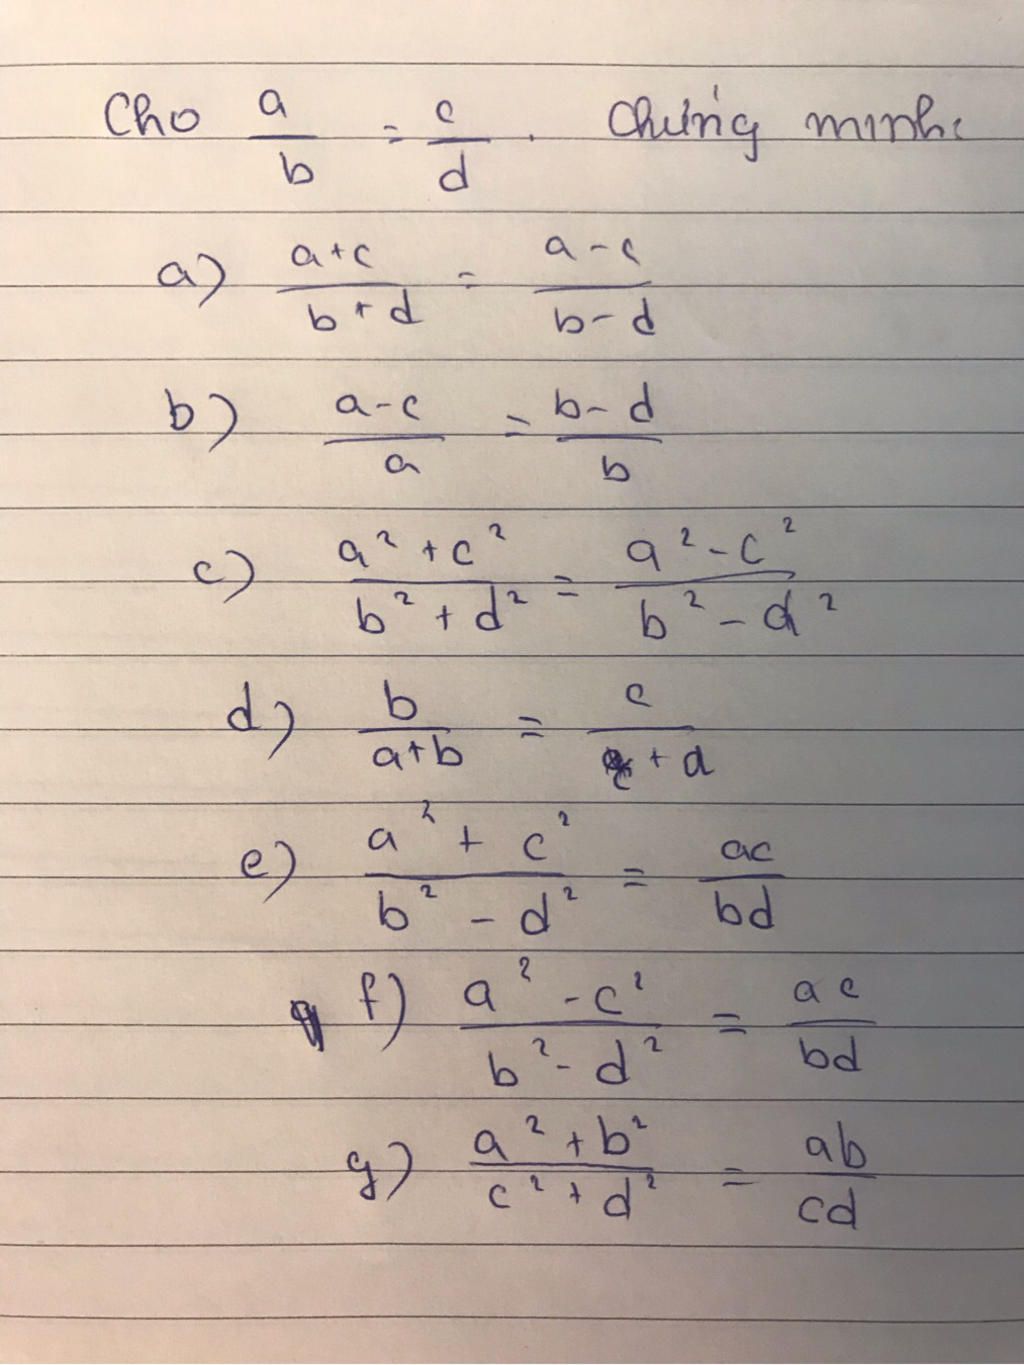 Cho a/b = c/d. Chứng minh:
a) (a+c)/(b+d) = (a-c)/(b-d)
b) (a-c)/a = (b-d)/b
c) (a²+c²)/(b²+d²) = (a²-c²)/(b²-d²)
d) b/(a+b) = c/(c+d)
e) (a²+c²)/(b²-d²) = ac/bd
f) (a²-c²)/(b²-d²) = ac/bd
g) (a²+b²)/(c²+d²) = ab/cd